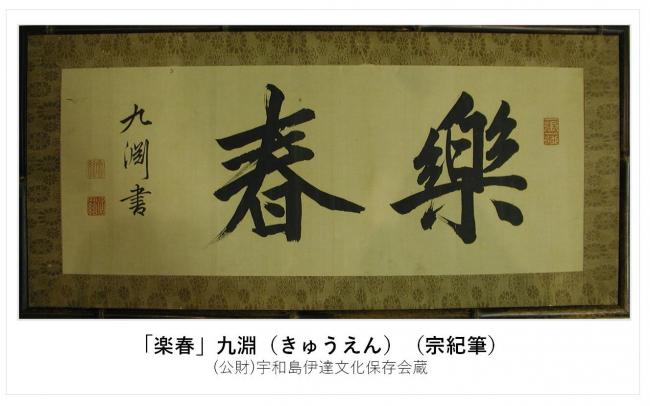 樂春
九淵書
「楽春」九淵（きゅうえん）（宗紀筆）
(公財)宇和島伊達文化保存会蔵